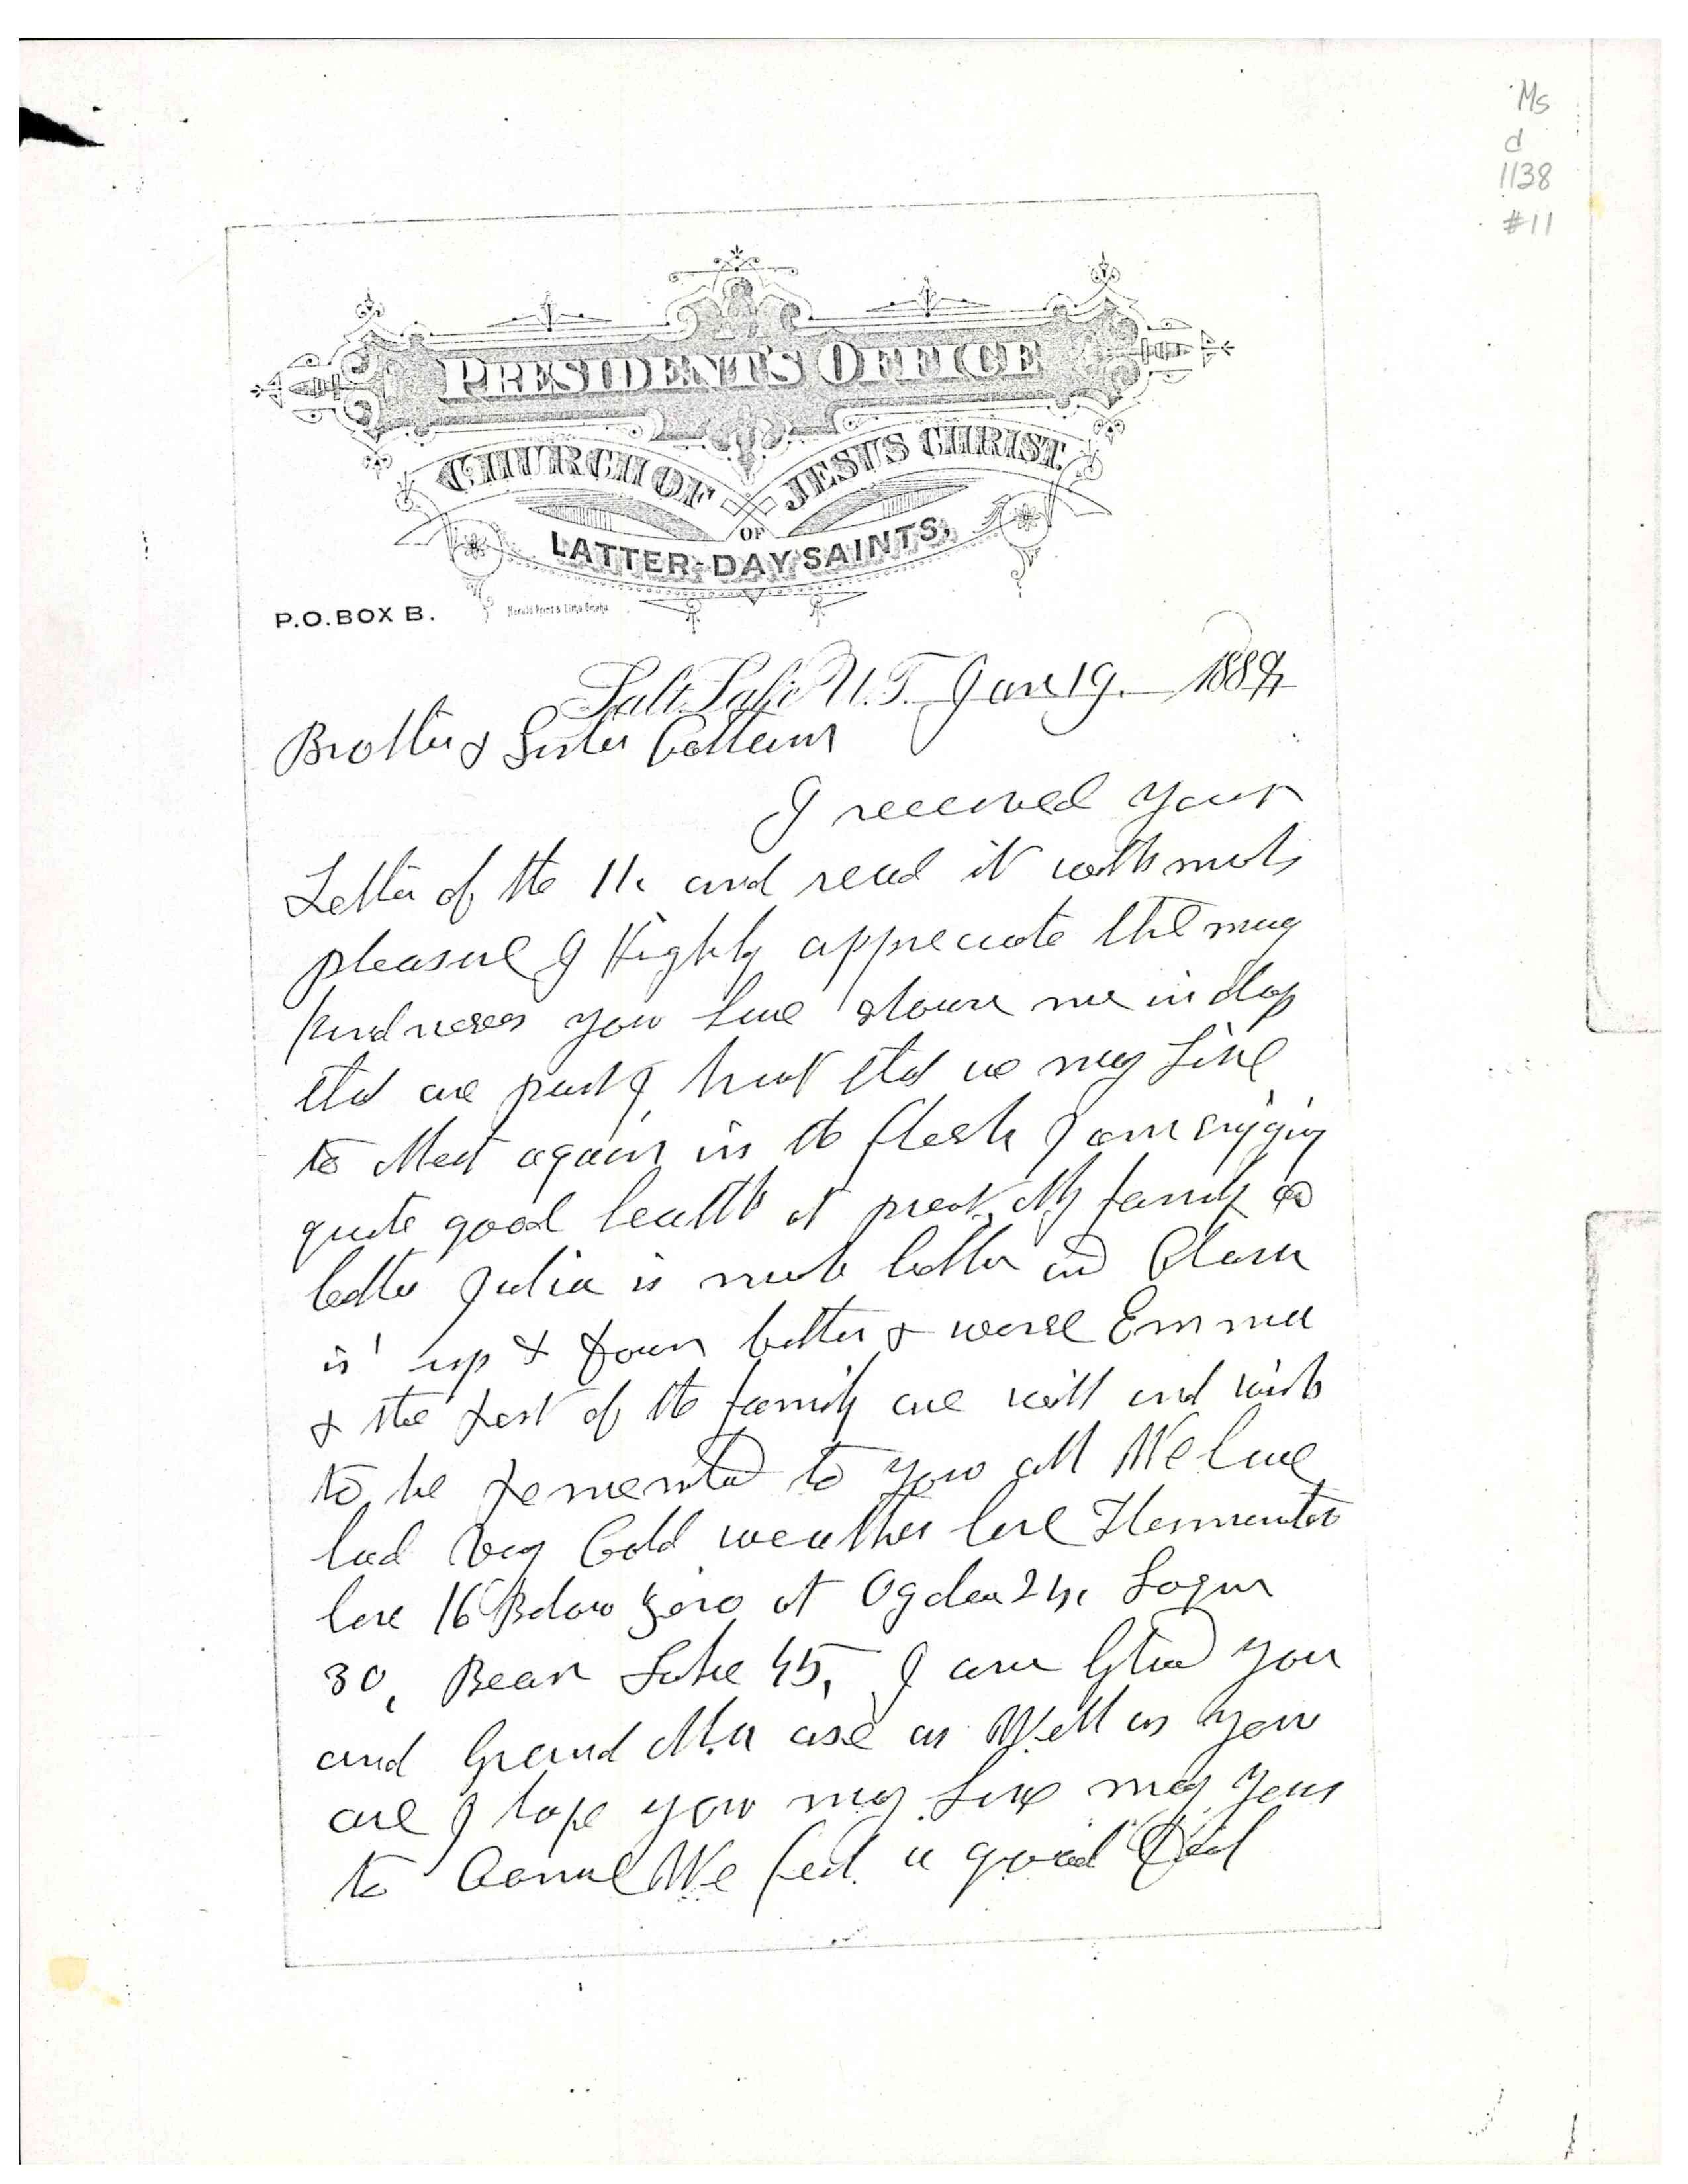 Ms
d
1138
#11
PRESIDENT'S OFFICE
CHURCH OF JESUS CHRIST
OF
LATTER-DAY SAINTS,
P.O. BOX B.
Salt Lake U.T. Jan 19. 1888
Brother & Sister Cottam
I received your
Letter of the 11. and read it with much
pleasure I Highly appreciate the many
kindnesses you have shown me in days
that are past I trust that we may live
to Meet again in the flesh I am enjoying
quite good health at present My family are
better Julia is much better and Clara
is up & down better & worse Emma
& the rest of the family are well and wish
to be remembered to you all We have
had very Cold weather here Thermometer
here 16 Below Zero at Ogden 24, Logan
30, Bear Lake 45, I am Glad you
and Grand Ma are as Well as you
are I hope you may live many years
to Come We feel a good Deal